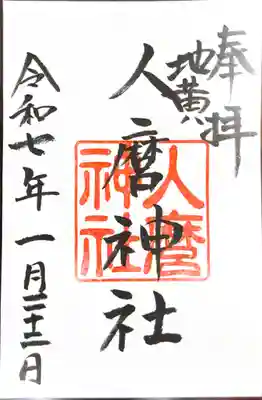 奉拝
地黄
人麿神社
人麿
神社
令和七年一月二十二日